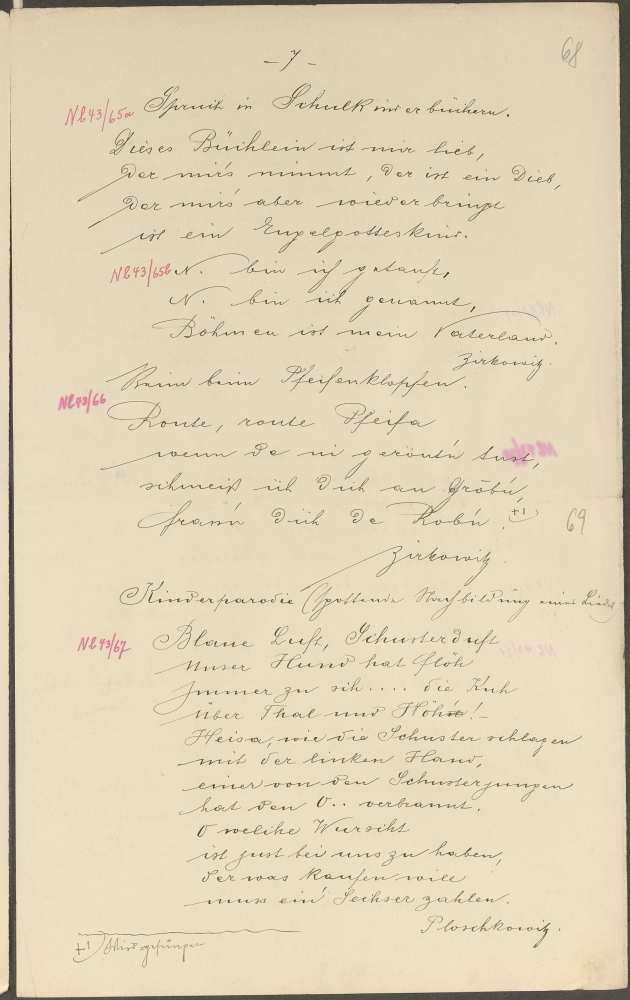 - 7 -
68
Nl 43/65a Spruch in Schulkinderbüchern.
Dieses Büchlein ist mir lieb,
Der mir's nimmt, der ist ein Dieb,
Der mir's aber wieder bringt
ist ein Engelgotteskind.
Nl 43/65b N. bin ich getauft,
N. bin ich genannt,
Böhmen ist mein Vaterland.
Zirkowitz.
Reim beim Pfeifenklopfen.
Nl 43/66
Route, route Pfeifa
wenn de ni gerōut'n tust,
schmeiß ich dich an Gröb'n,
frass'n dich de Rob'n. +1)
69
Zirkowitz.
Kinderparodie (spottende Nachbildung eines Liedes)
Nl 43/67 Blaue Luft, Schusterduft
unser Hund hat flöh
Immer zu sih.... die Kuh
über Thal und Höh'n! -
Heisa, wie die Schuster schlagen
mit der linken Hand,
einer von den Schusterjungen
hat den O.. verbrannt.
O welche Wurscht
ist just bei uns zu haben,
der was kaufen will
muss ein' Sechser zahlen.
Ploschkowitz.
+1) Wird gesungen